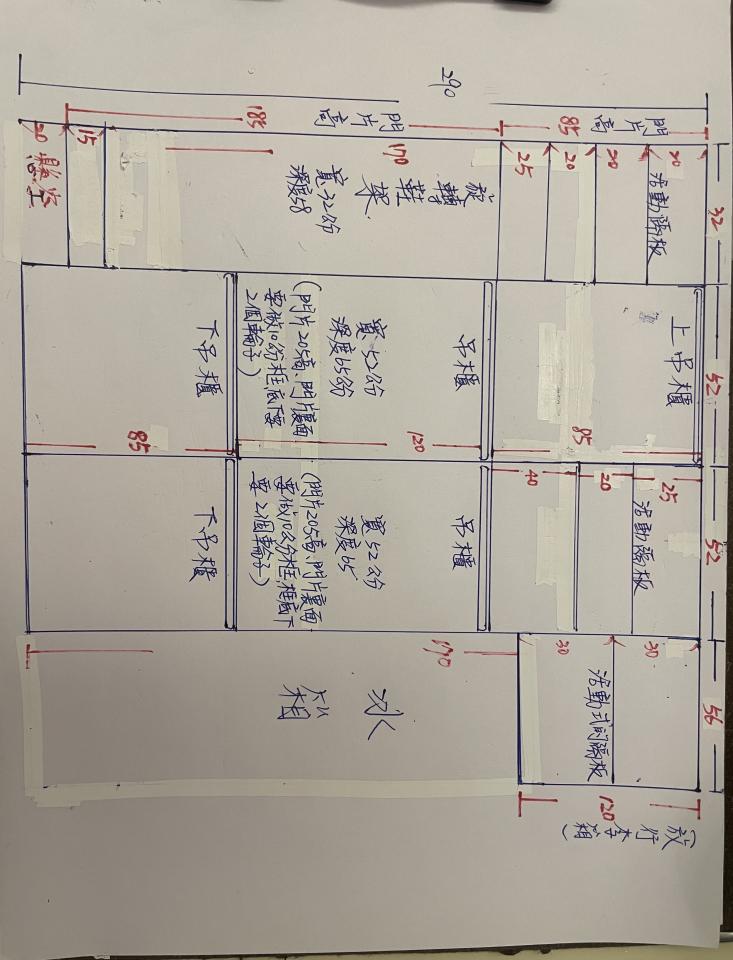 32
52
52
56
290
門片高
85
20
活動隔板
20
20
25
門片高
185
170
放
轉
鞋
架
寬32公分
深度58
15
20 懸空
上吊櫃
85
吊櫃
寬52公分
深度65公分
(門片205高、門片裏面
要做10公分框底下要
2個輪子)
120
下吊櫃
85
25
活動隔板
20
40
吊櫃
寬52公分
深度65
(門片205高、門片裏面
要做10公分框,框底下
要2個輪子)
下吊櫃
30
活動式的隔板
30
120
(放行李箱)
170
冰
箱